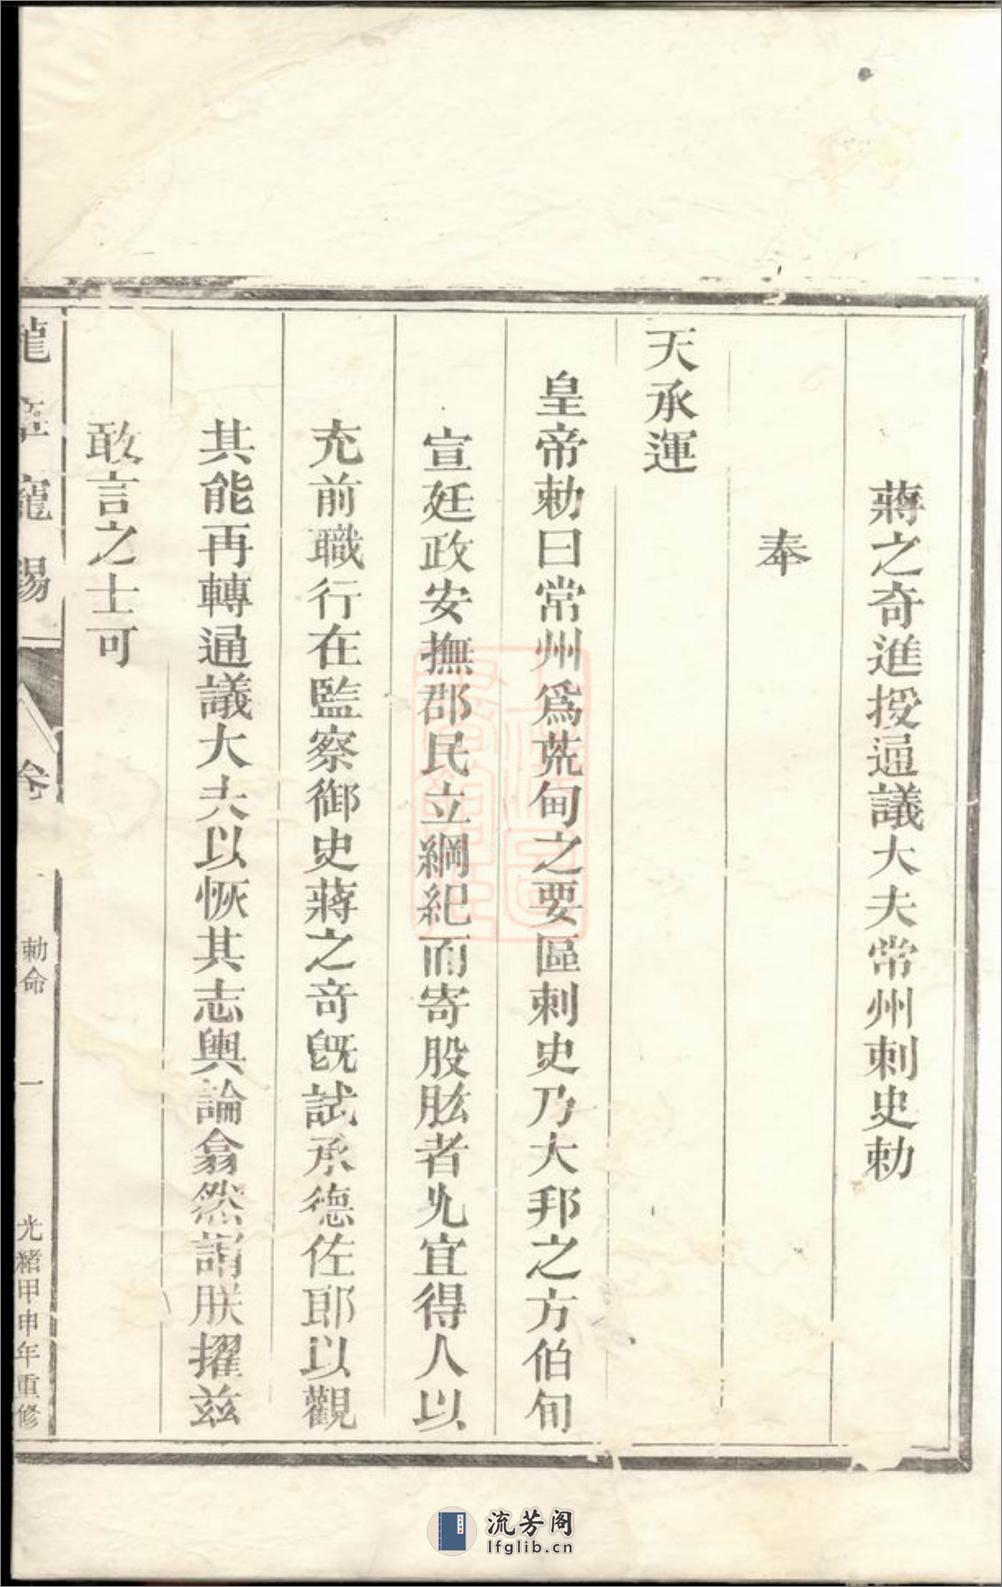 蔣之奇進授通議大夫常州刺史勅
奉
天承運
皇帝勅曰常州爲荒甸之要區刺史乃大邦之方伯旬
宣廷政安撫郡民立綱紀而寄股肱者尤宜得人以
充前職行在監察御史蔣之奇旣試承德佐郎以觀
其能再轉通議大夫以恢其志輿論翕然謂朕擢兹
敢言之士可
龍章寵錫
卷
勅命
一
光緒甲申年重修
流芳阁
lfglib.cn